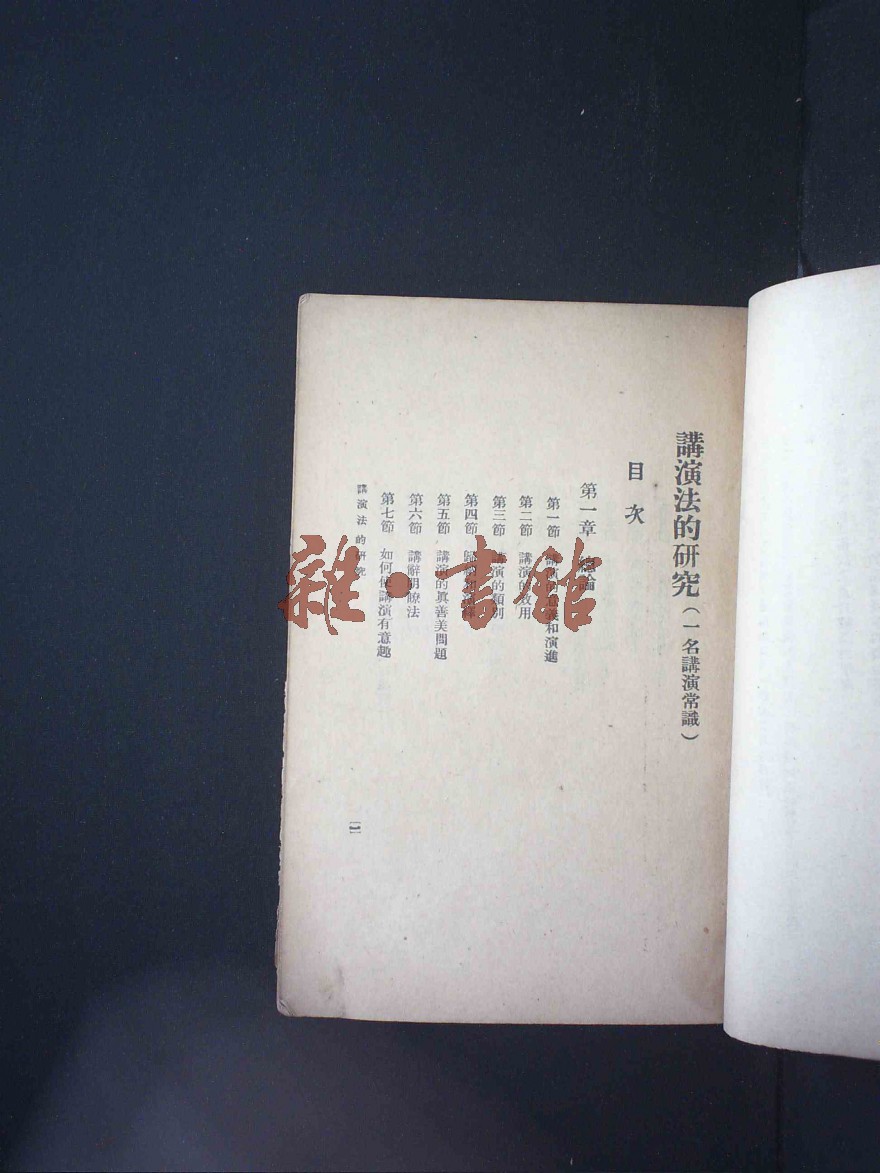 講演法的研究(一名講演常識)
目次
第一章 總論
第一節 講演的意義和演進
第二節 講演的效用
第三節 講演的類別
第四節
第五節 講演的眞善美問題
第六節 講解明瞭法
第七節 如何使講演有意趣
講演法的研究
雜·書館